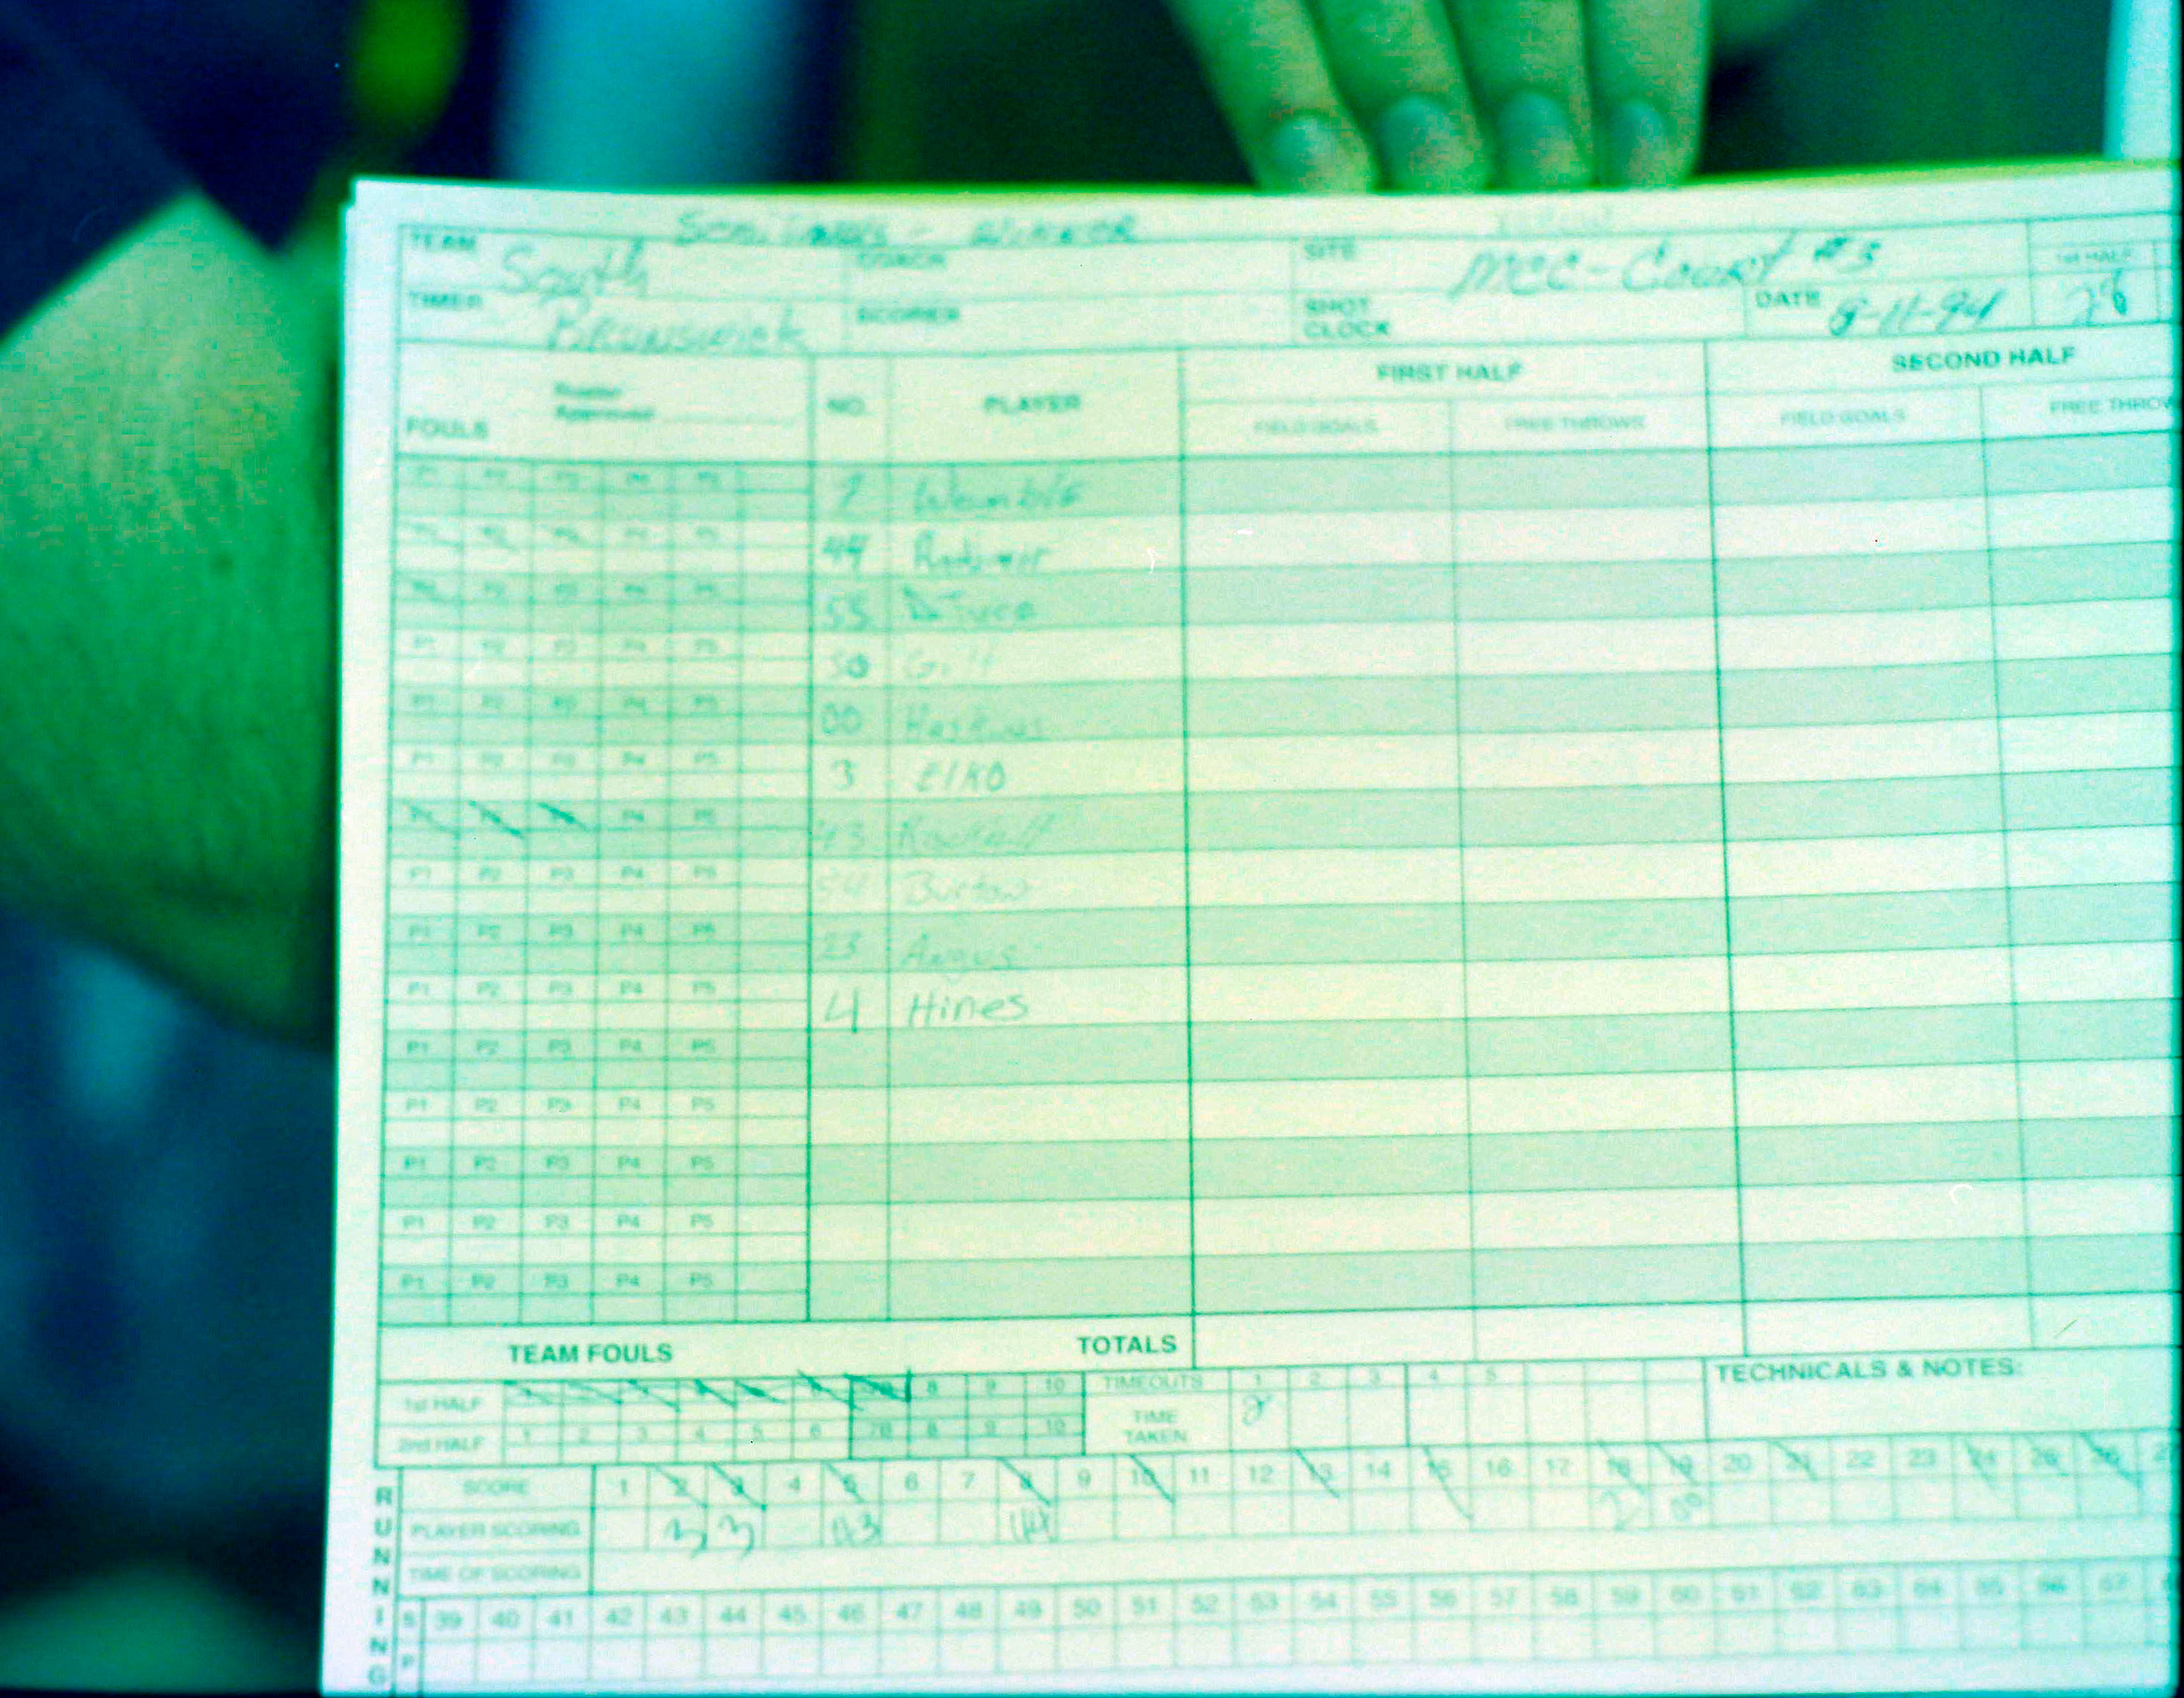 TEAM South Brunswick COACH SITE MCC - Court #3 1st HALF 28
TIMER SCORER SHOT CLOCK DATE 8-11-94
FOULS Roster Approved NO. PLAYER FIRST HALF SECOND HALF
FIELD GOALS FREE THROWS FIELD GOALS FREE THROW
P1 P2 P3 P4 P5 Womble
P1 P2 P3 P4 P5 44
P1 P2 P3 P4 P5 55
P1 P2 P3 P4 P5 50
P1 P2 P3 P4 P5 00
P1 P2 P3 P4 P5 3 Elko
P1 P2 P3 P4 P5 43
P1 P2 P3 P4 P5 Burton
P1 P2 P3 P4 P5 23 Angus
P1 P2 P3 P4 P5 4 Hines
P1 P2 P3 P4 P5
P1 P2 P3 P4 P5
P1 P2 P3 P4 P5
P1 P2 P3 P4 P5
P1 P2 P3 P4 P5
TEAM FOULS TOTALS
1st HALF 1 2 3 4 5 6 7B 8 9 10 TIMEOUTS 1 2 3 4 5 TECHNICALS & NOTES:
2nd HALF 1 2 3 4 5 6 7B 8 9 10 TIME TAKEN 2
RUNNING
SCORE 1 2 3 4 5 6 7 8 9 10 11 12 13 14 15 16 17 18 19 20 21 22 23 24 25 26
PLAYER SCORING 3 3 43 44 2 00
TIME OF SCORING
S 39 40 41 42 43 44 45 46 47 48 49 50 51 52 53 54 55 56 57 58 59 60 61 62 63 64 65 66 67
P